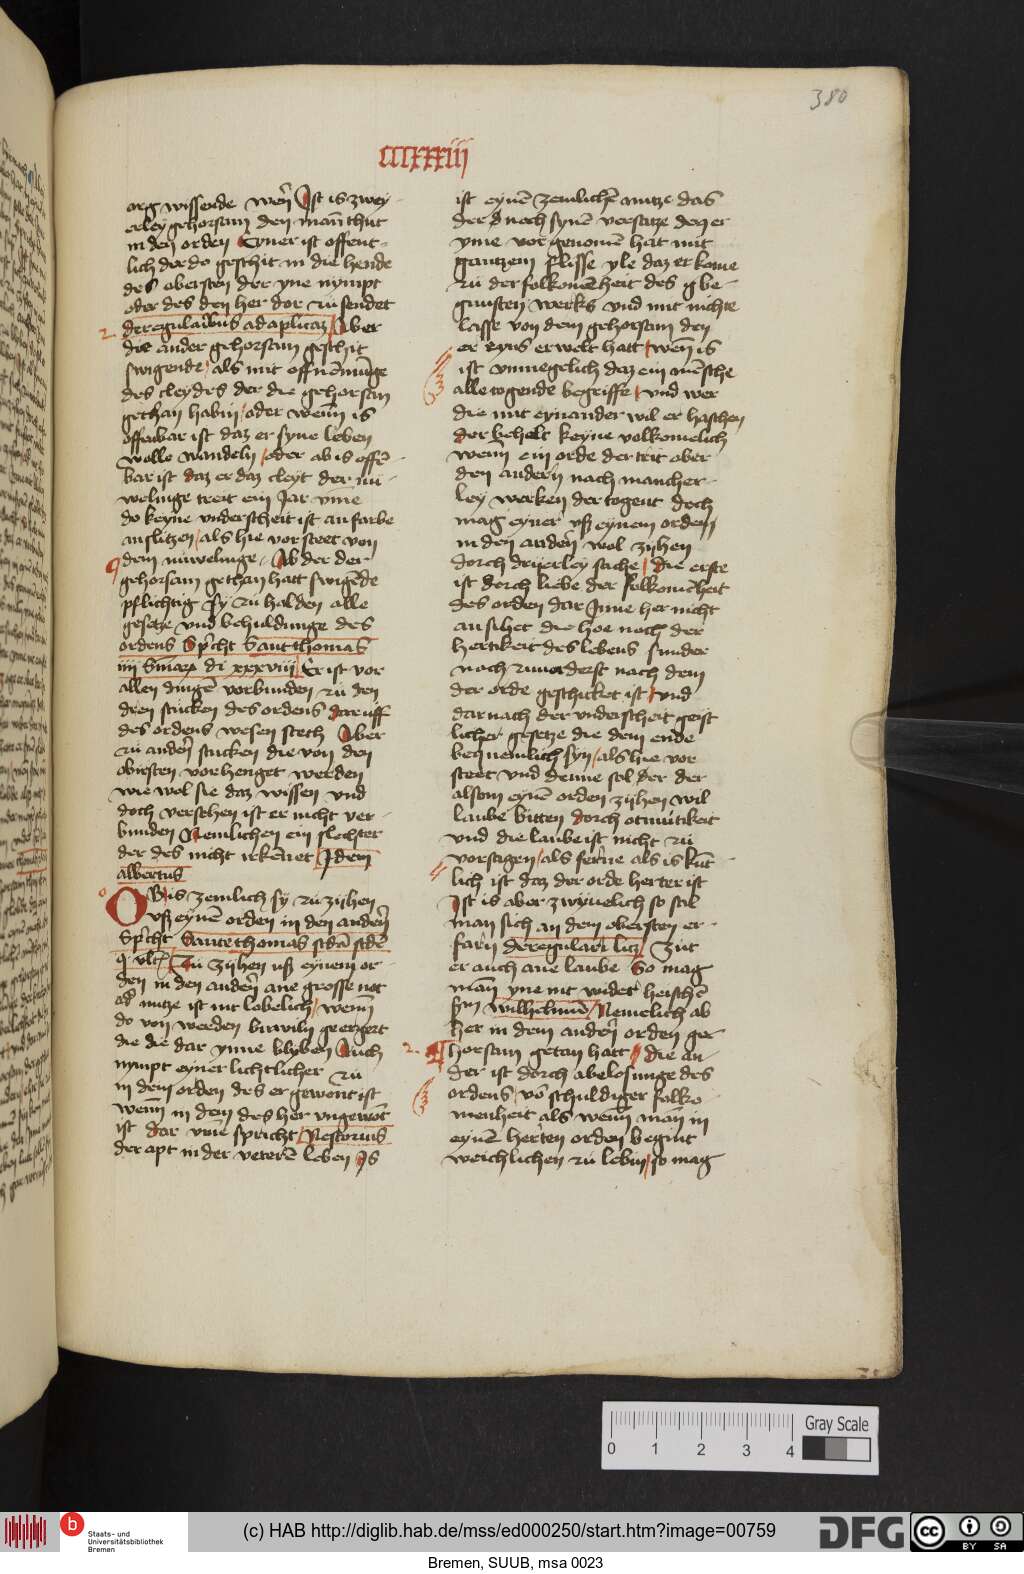 380
cccxxxiii
org wissende wern̄ Ist is zwey
erley gehorsam den man thut
in den orden Eyner ist offent
lich der do geschit in die hende
des obersten der yne nympt
oder des den her dor zu sendet
de regularibus ad aplicaz Aber
die ander gehorsam geschit
swigende / als mit offnemūge
des cleydes der die gehorsam
gethan habin / oder wenn is
offinbar ist daz er syne leben
wolle wandeln / oder ab is offē
bar ist daz er daz cleyt der nu
welinge treit ein Jar yme
do keyne vnderscheit ist an farbe
an slitzen / als hie vor steet von
dem nuwelinge Ab der der
gehorsam gethan hatt swigēde
pflichtig sy zu halden alle
gesetze vnd behuldunge des
ordens Spricht Sant thomas
iiii di xxxviii Er ist vor
allen dingē vorbunden zu den
dren stucken des ordens dar uff
des ordens wesen stech Aber
zu andern stucken die von den
obirsten vorhenget werden
wie wol sie daz wissen vnd
doch versehen ist er nicht ver
bunden Nemlichen ein slechter
der des nicht irkennet Idem
albertus
OB is zemlich sy zu zijhen
uß eynē orden in den andern
Spricht Sante thomas scda scde
q vlt Zu zijhen uß eynem or
den in den andern ane grosse not
ad nutze ist nit lobelich / wenn
do von werden biwiln geergert
die die dar ynne blyben Auch
nympt eyner lichtlicher zu
in dem orden des er gewont ist
wenn in dem des her vngewōt
ist dar vme spricht Nestorius
der apt in der veterē leben Is
ist eynē zemlichē nutze das
der d noch synē versatze dez er
yme vor genomē hat mit
gantzem flisse yle daz er kome
zu der folkomēheit des gbe
gunsten werks vnd mit nichte
lasse von dem gehorsam den
er eyns erwelt hatt / wen is
ist vnmegelich daz ein mēsche
alle togende begriffe / vnd wer
die mit eynander wil er haschen
der behelt keyne volkomelich
wenn ein orde der trit ober
den andern nach mancher
ley werken der togent doch
mag eyner uß eynem orden
in den andern wol zijhen
dorch dryerley sache / die erste
ist dorch liebe der folkomēheit
des orden dar Inne her nicht
an sihet die hoe noch der
hertikeit des lebens sunder
noch zuuorderst nach dem
der orde geschicket ist / vnd
darnach der vnderscheit geist
licher gesetze die dem ende
bequemlich syn / als hie vor
steet vnd denne sol der der
alsom eynē orden zijhen wil
laube bitten dorch otmutikeit
vnd die laube ist nicht zu
vorstigen / als ferne als is kūt
lich ist daz der orde herter ist
Ist is aber zwyuelich so sol
man sich an dem obersten er
farn de regulari licz Zut
er auch ane laube So mag
man yne nit wider heischē
Wilhelmū / Nemelich ab
her in dem andern orden ge
horsam getan hatt / die an
der ist dorch abelosunge des
ordens / vō schuldiger folko
menheit als wenn man in
eynē herten orden begint
weichlichen zu lebin / so mag
0 1 2 3 4
Gray Scale
b
Staats- und
Universitätsbibliothek
Bremen
(c) HAB http://diglib.hab.de/mss/ed000250/start.htm?image=00759
DFG
cc
BY SA
Bremen, SUUB, msa 0023